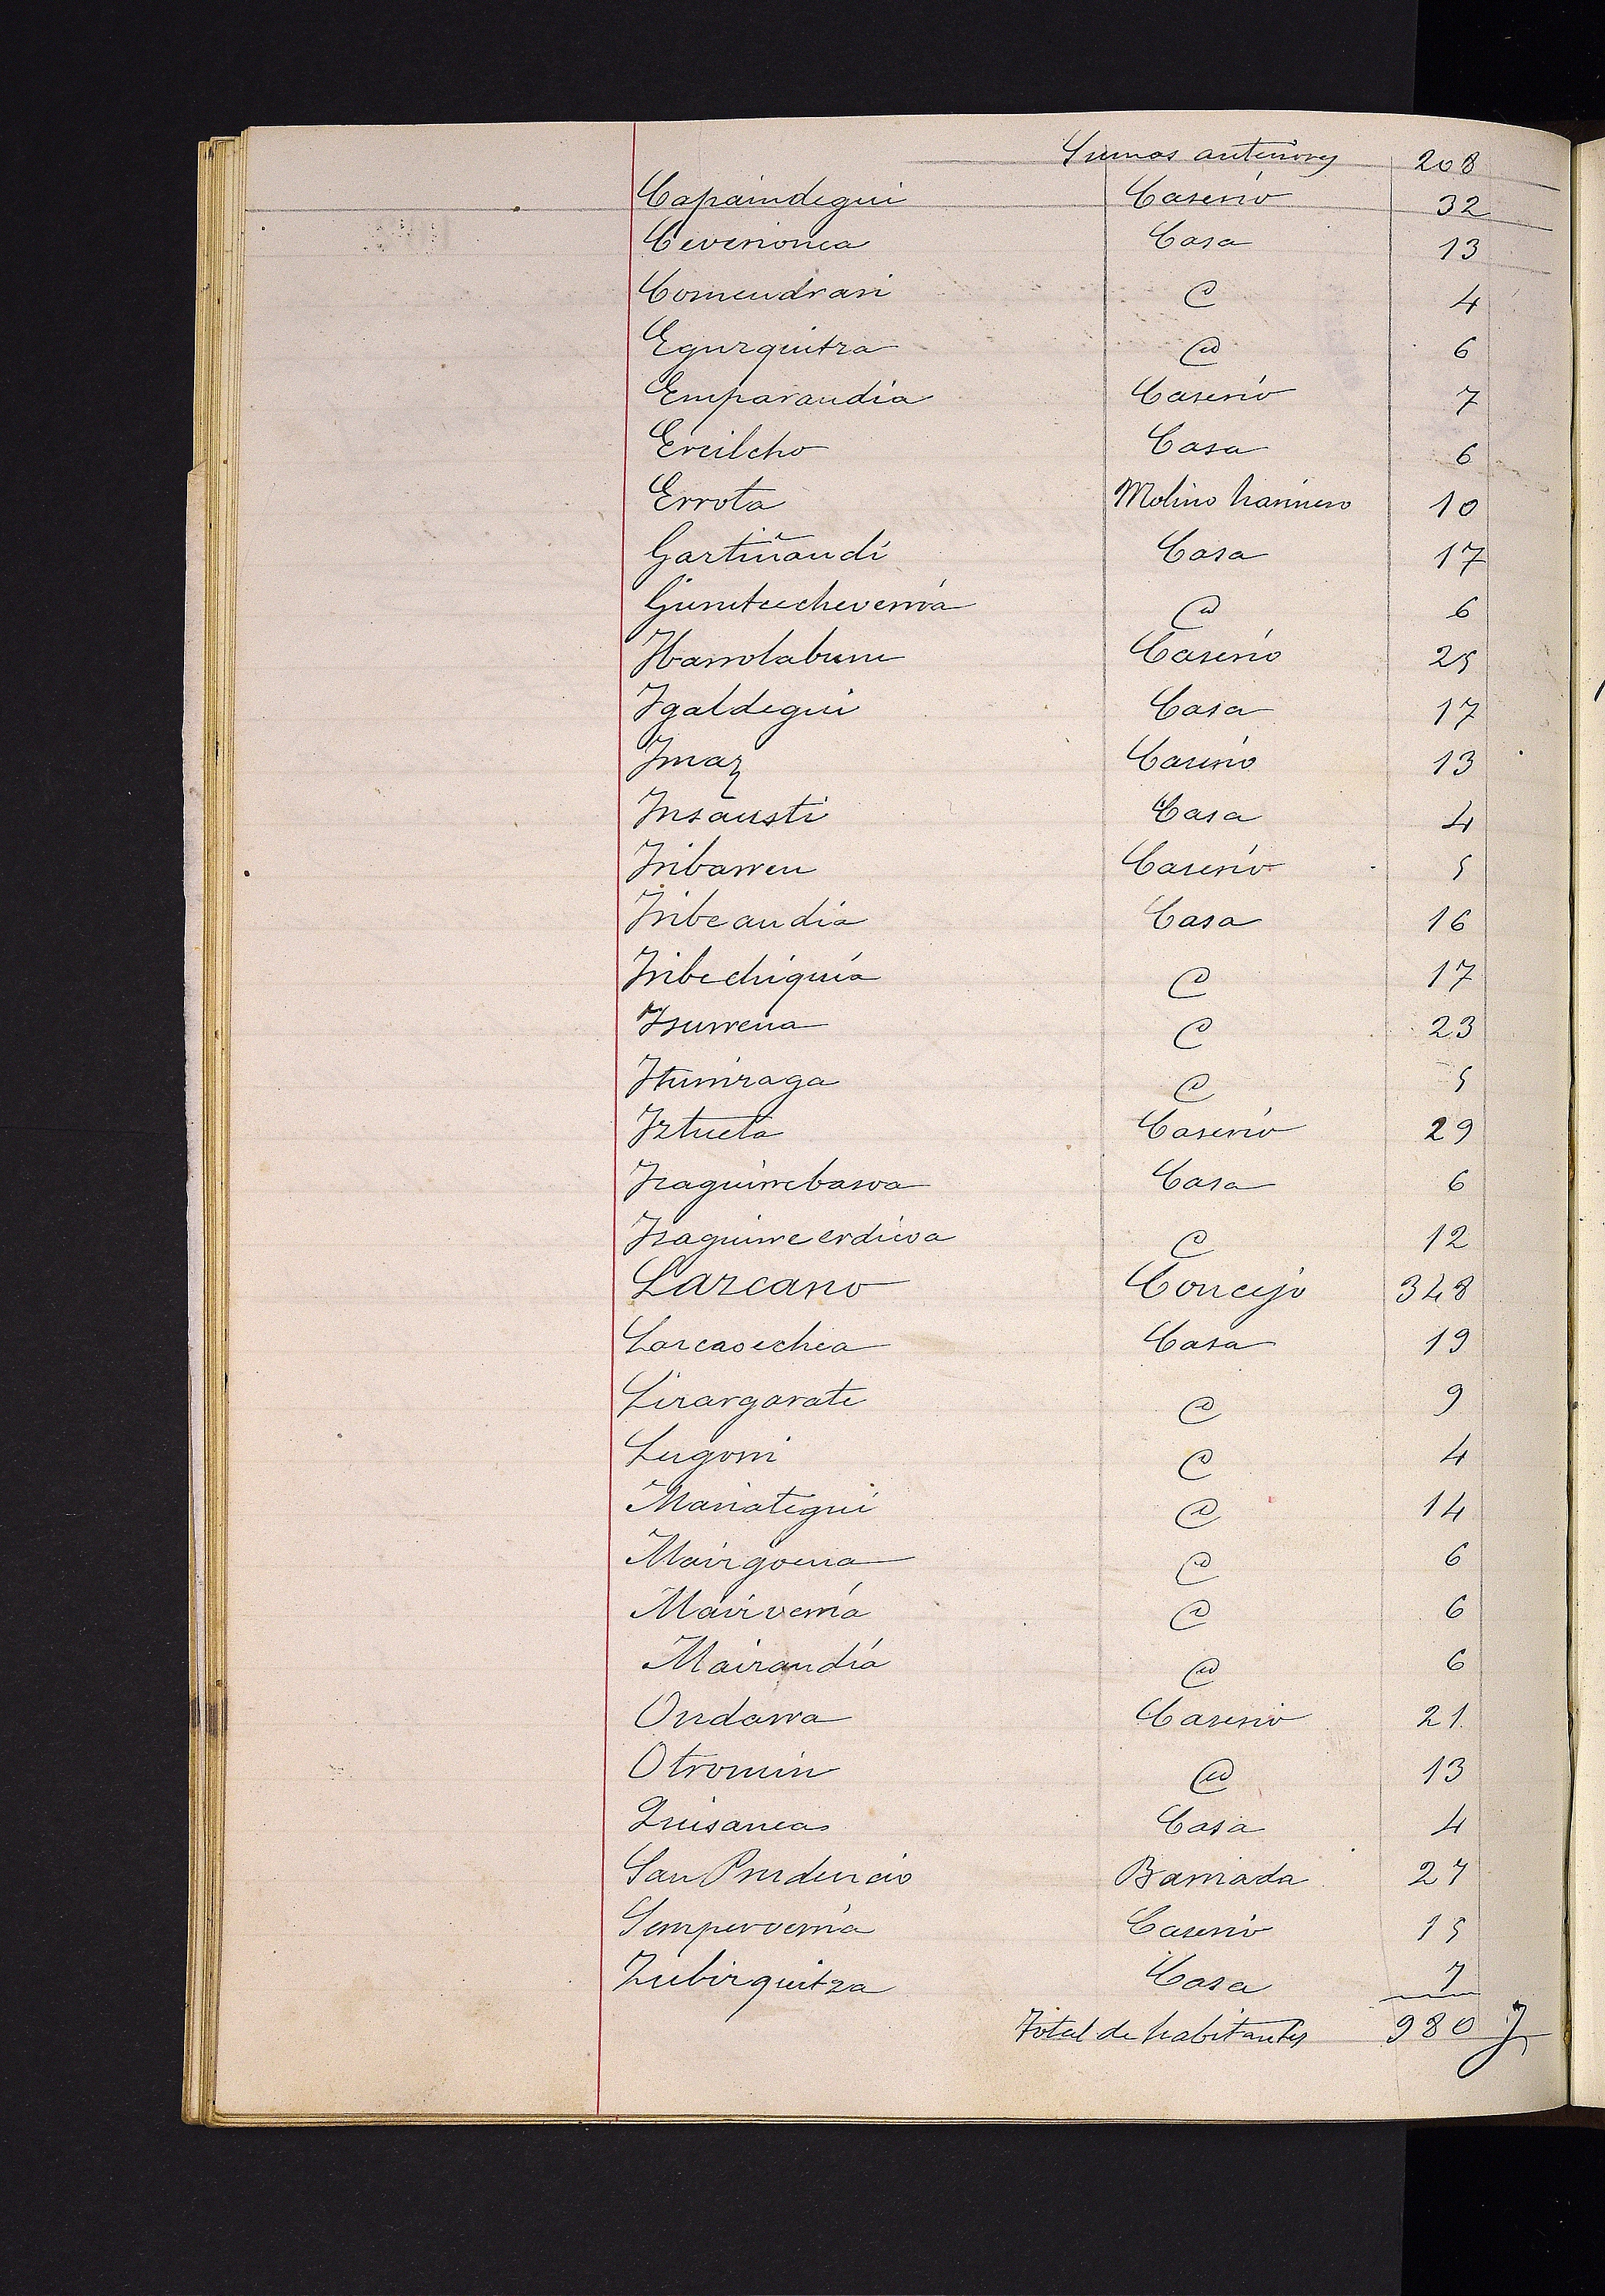 Sumas anteriores 208
Capaindegui Caserío 32
Ceverionea Casa 13
Comendrari @ 4
Egurquitza @ 6
Emparandía Caserío 7
Ercilcho Casa 6
Errota Molino harinero 10
Gartiñandi Casa 17
Gurutcecheverría @ 6
Ibarrolaburu Caserío 25
Igaldegui Casa 17
Imaz Caserío 13
Insausti Casa 4
Iribarren Caserío 5
Iribeandía Casa 16
Iribechiquía @ 17
Isurrena @ 23
Iturriraga @ 5
Iztueta Caserío 29
Izaguirrebarva Casa 6
Izaguirreerdicoa @ 12
Lazcano Concejo 348
Lazcaoechea Casa 19
Lizargarate @ 9
Lugorri @ 4
Mariategui @ 14
Maizgoena @ 6
Maizverría @ 6
Maizandía @ 6
Ondarra Caserío 21
Otromin @ 13
Quisanea Casa 4
San Prudencio Barriada 27
Semperverría Caserío 15
Zubizquitza Casa 7
Total de habitantes 980